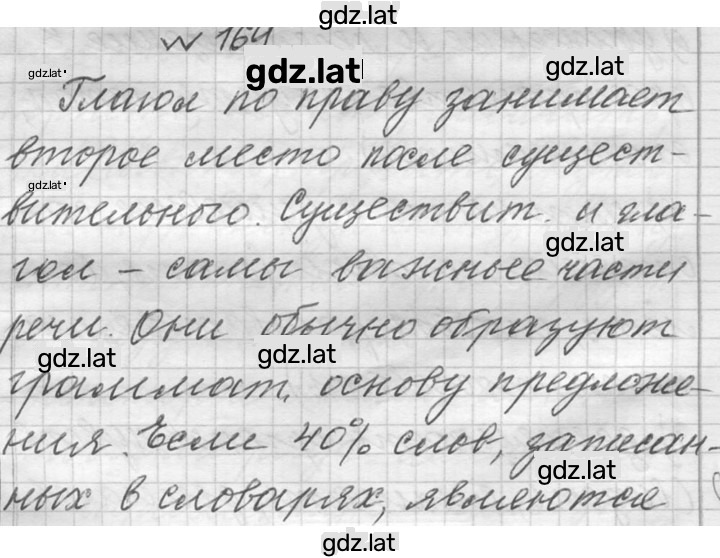 gdz.lat
№ 164
gdz.lat
gdz.lat
gdz.lat
Глагол по праву занимает
второе место после сущест-
gdz.lat
вительного. Существит. и гла-
gdz.lat
гол - самы важные части
речи. Они обычно образуют
gdz.lat
gdz.lat
граммат. основу предложе-
ния. Если 40% слов, записан-
gdz.lat
ных в словарях, являются
gdz.lat